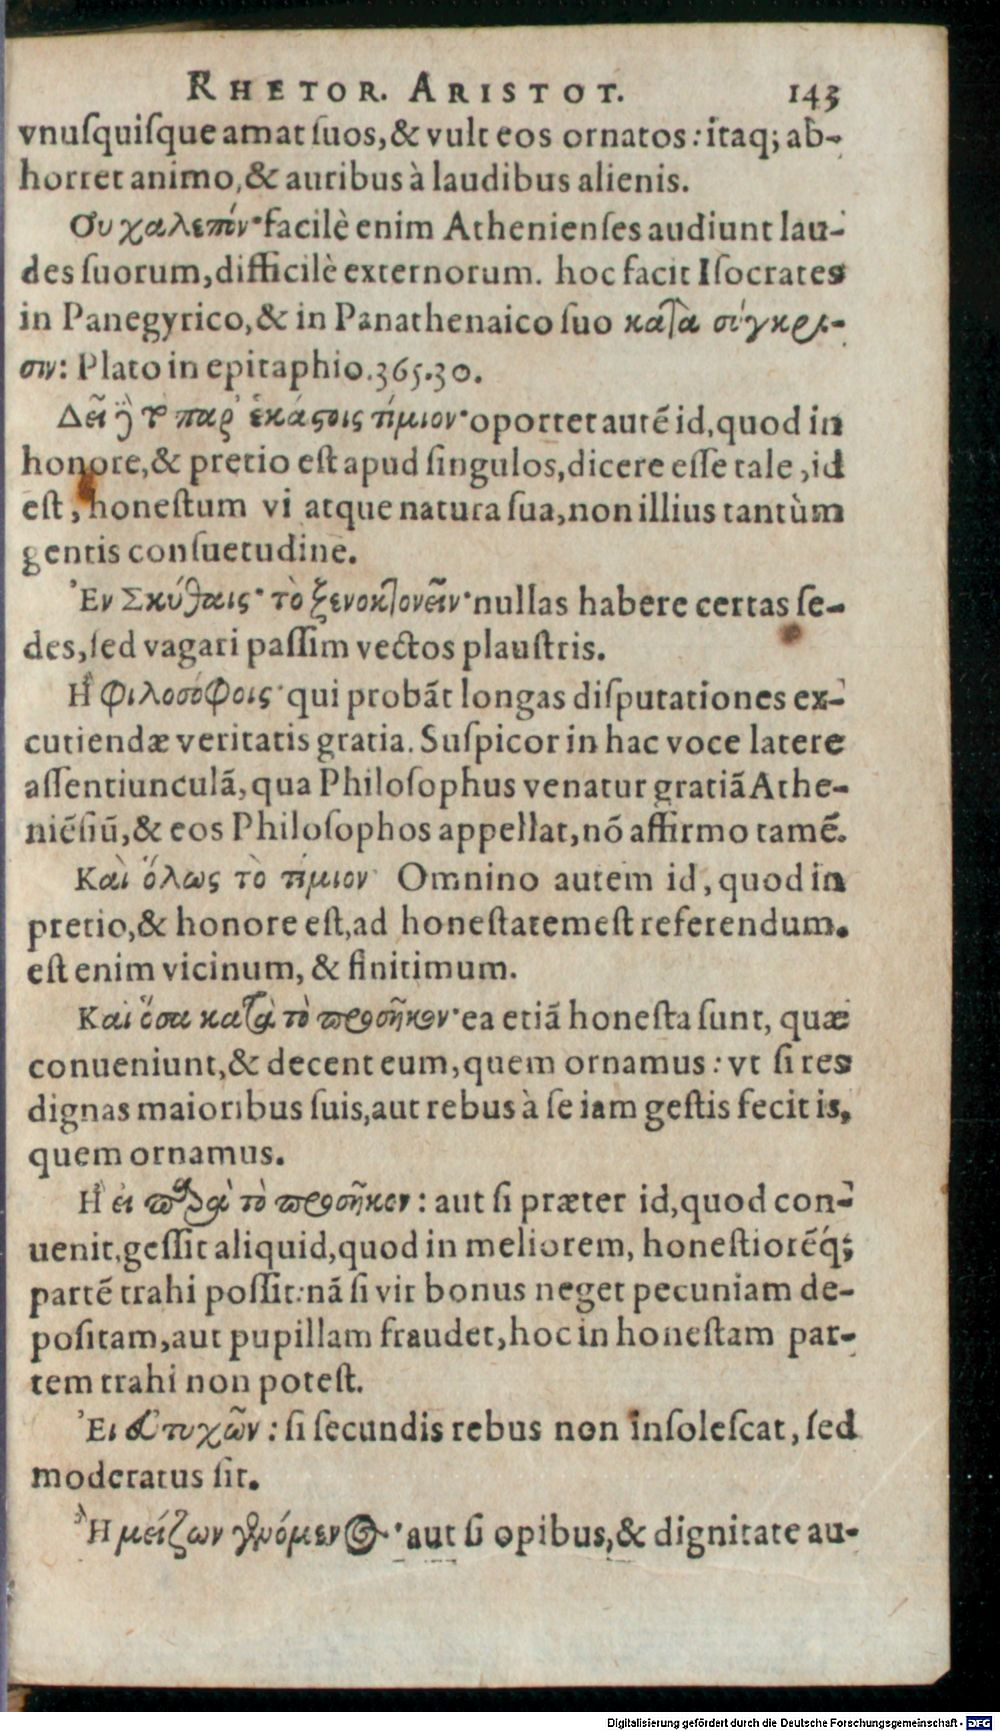 RHETOR. ARISTOT. 143
vnuſquiſque amat ſuos,& vult eos ornatos: itaq; ab-
horret animo,& auribus à laudibus alienis.
Οὐ χαλεπόν· facilè enim Athenienſes audiunt lau-
des ſuorum,difficilè externorum. hoc facit Iſocrates
in Panegyrico,& in Panathenaico ſuo κατὰ σύγκρι-
σιν: Plato in epitaphio.365.30.
Δεῖ ἢ τ παρ' ἑκάστοις τίμιον· oportet autē id,quod in
honore,& pretio eſt apud ſingulos,dicere eſſe tale,id
eſt, honeſtum vi atque natura ſua,non illius tantùm
gentis conſuetudine.
Ἐν Σκύθαις· τὸ ξενοκτονεῖν· nullas habere certas ſe-
des,ſed vagari paſſim vectos plauſtris.
Ἢ φιλοσόφοις· qui probāt longas diſputationes ex-
cutiendæ veritatis gratia. Suſpicor in hac voce latere
aſſentiunculā,qua Philoſophus venatur gratiā Athe-
niēſiū,& eos Philoſophos appellat,nō affirmo tamē.
Καὶ ὅλως τὸ τίμιον· Omnino autem id,quod in
pretio,& honore eſt,ad honeſtatem eſt referendum.
eſt enim vicinum, & finitimum.
Καὶ ὅσα κατὰ τὸ προσῆκον· ea etiā honeſta ſunt, quæ
conueniunt,& decent eum,quem ornamus: vt ſi res
dignas maioribus ſuis,aut rebus à ſe iam geſtis fecit is,
quem ornamus.
Ἢ εἰ παρὰ τὸ προσῆκον: aut ſi præter id,quod con-
uenit,geſſit aliquid,quod in meliorem, honeſtiorēq́;
partē trahi poſſit: nā ſi vir bonus neget pecuniam de-
poſitam,aut pupillam fraudet,hoc in honeſtam par-
tem trahi non poteſt.
Ἐι εὐτυχῶν: ſi ſecundis rebus non inſoleſcat, ſed
moderatus ſit.
Ἢ μείζων γινόμενος· aut ſi opibus,& dignitate au-
Digitalisierung gefördert durch die Deutsche Forschungsgemeinschaft - DFG